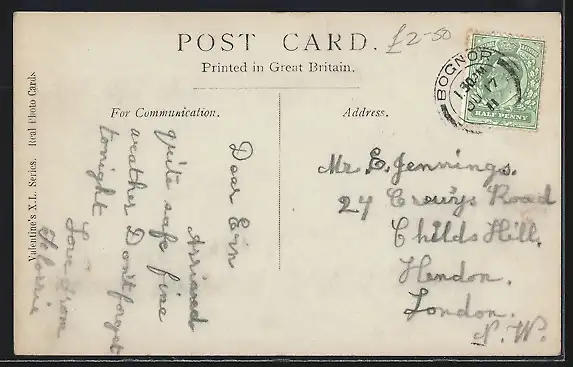 POST CARD.
£2-50
Printed in Great Britain.
For Communication.
Address.
Valentine's X.L. Series. Real Photo Cards
BOGNOR
1.30 PM
JU 17
11
HALF PENNY
Dear Ern
Arrived
quite safe fine
weather Don't forget
tonight
Love from
Mr. E. Jennings.
24 Crewys Road
Childs Hill.
Hendon.
London.
N.W.